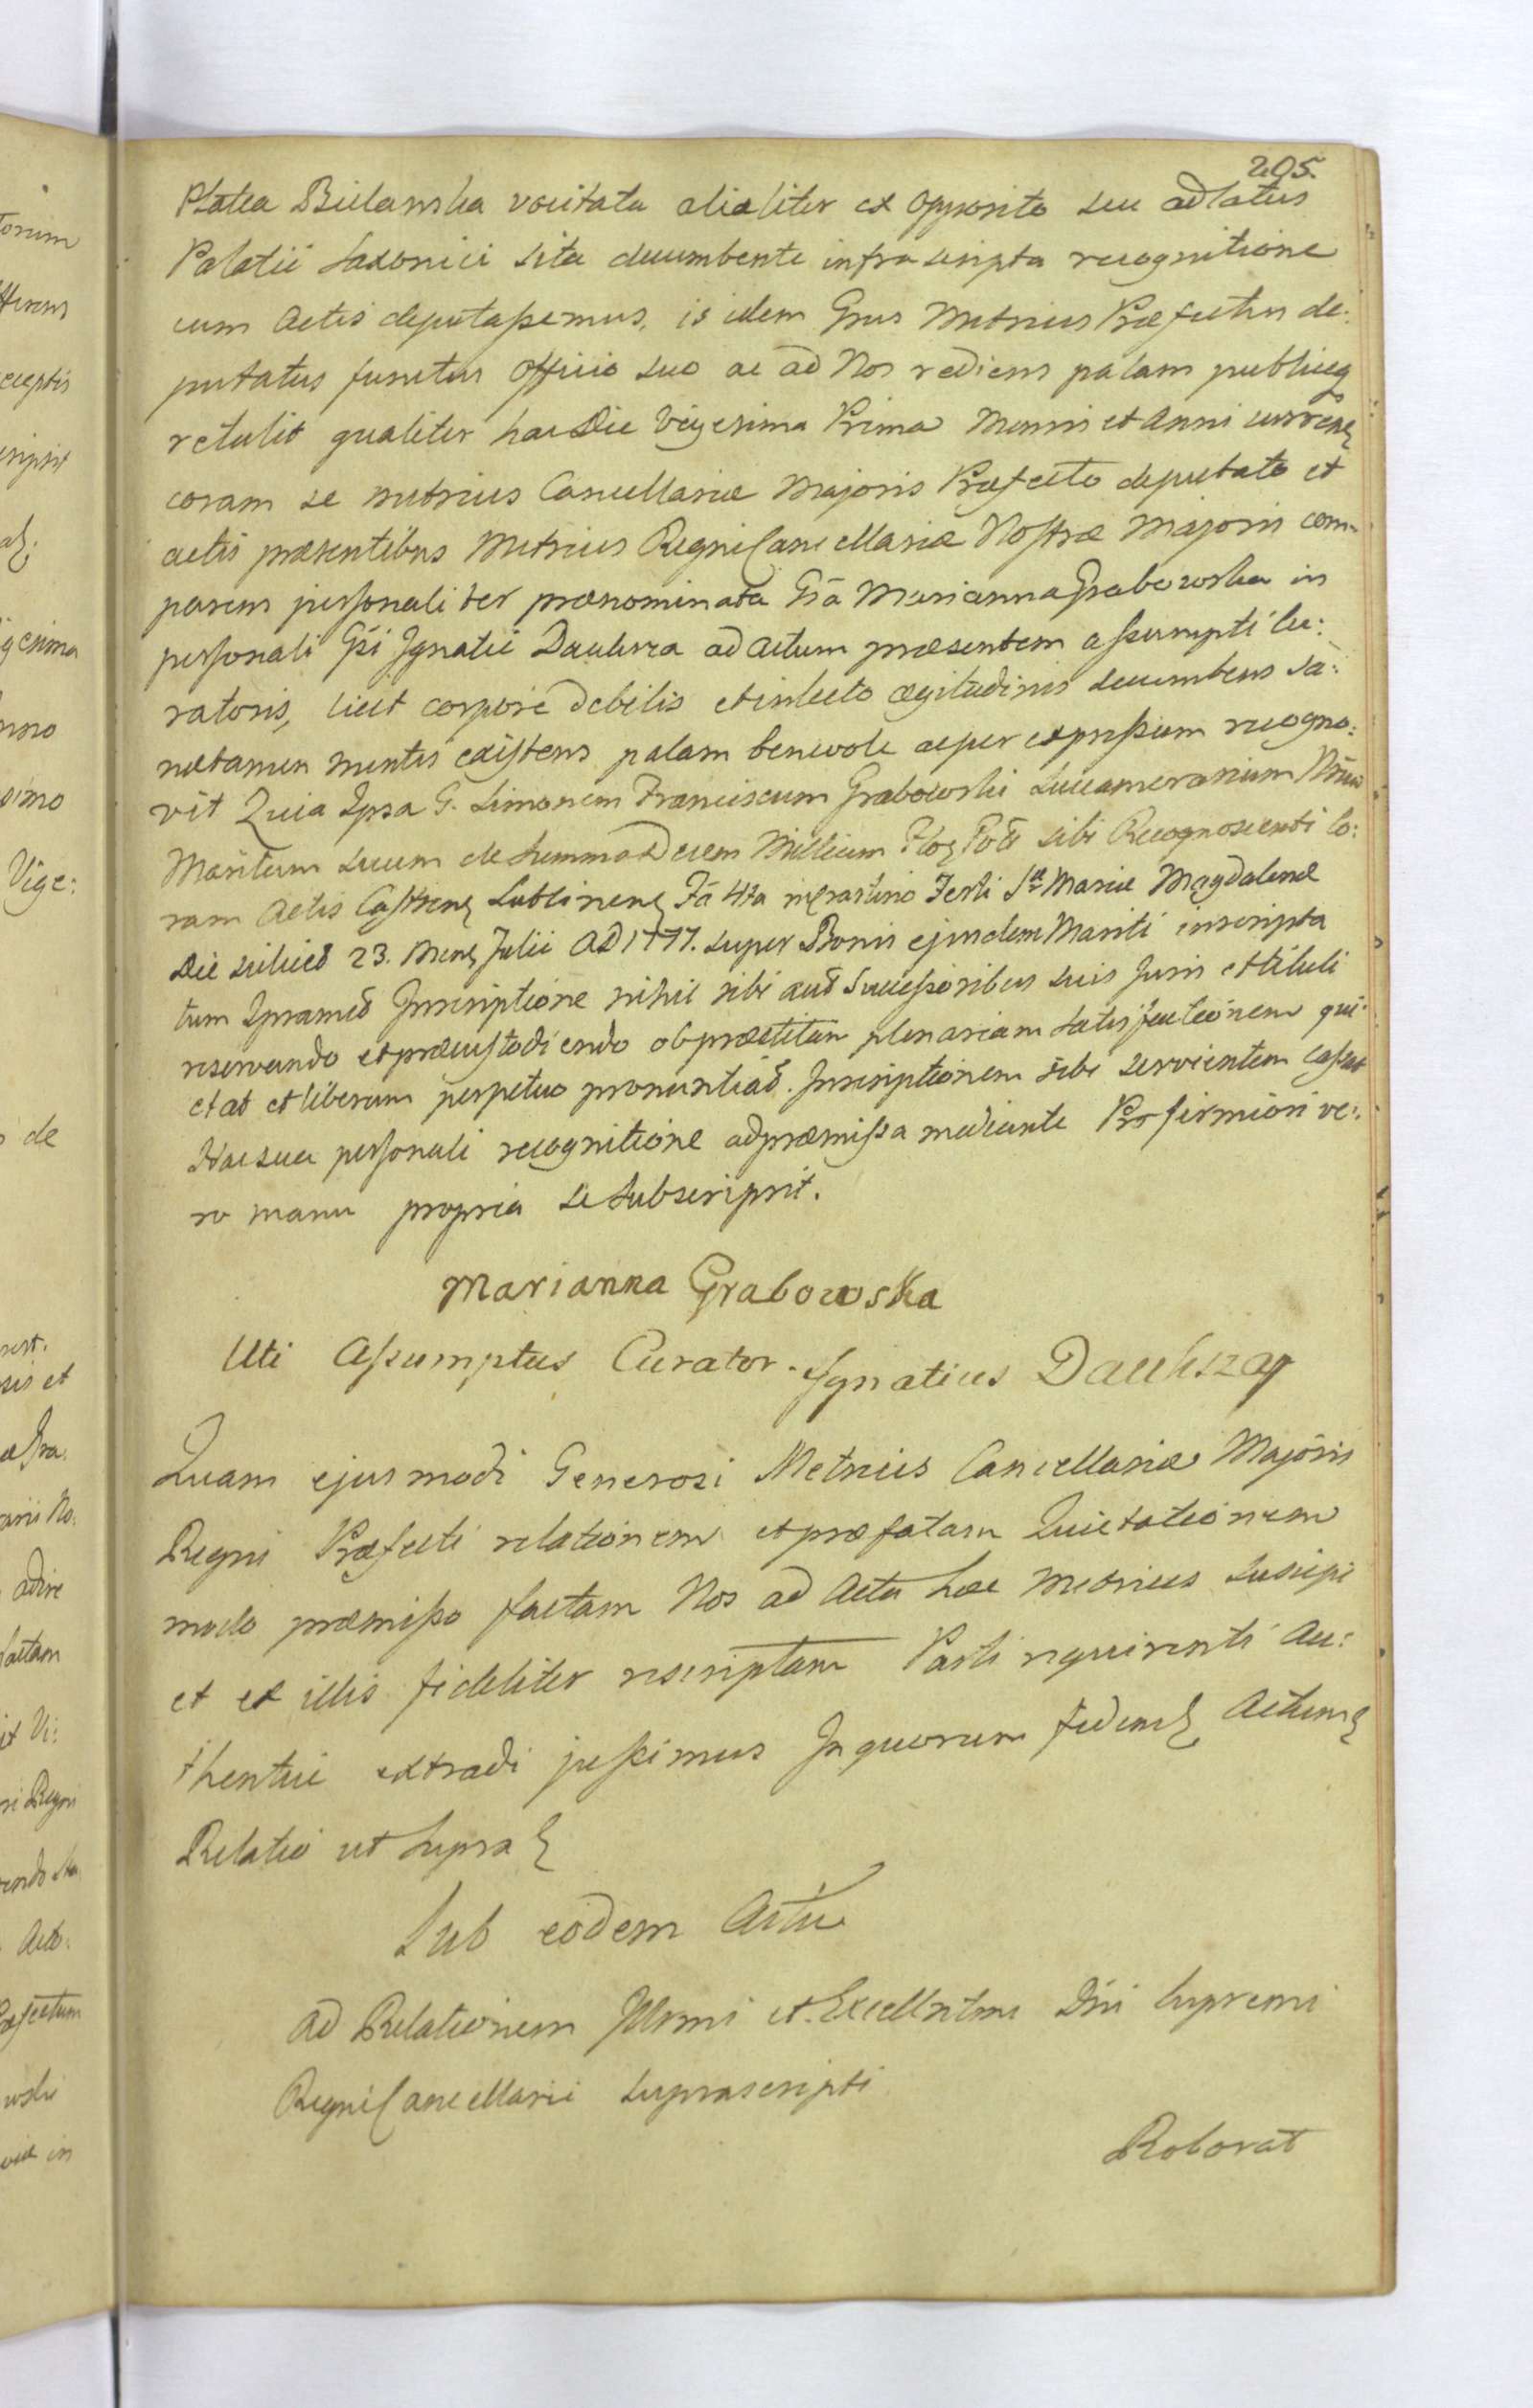 205.
Platea Bielanska vocitata alialiter ex opposito seu ad latus
Palatii Saxonici sita decumbente infrascripta recognitione
cum Actis deputassemus, is idem Grus Metrices Præfectus de:
putatus functus Officio suo ac ad Nos rediens palam publiceq
retulit qualiter hac Die Vigesima Prima Mensis et Anni curren
coram se Metrices Cancellariæ Majoris Præfecto deputato et
actis præsentibus Metrices Regni Cancellariæ Nostræ Majoris com-
parens personaliter prænominata Gsa Marianna Grabowska in
personali Gsi Ignatii Dauksza ad Actum præsentem assumpti Cu:
ratoris, licet corpore debilis et in lecto ægitudinis decumbens sa:
næ tamen mentis existens palam benevole ac per expressum recogno:
vit Quia Ipsa G. Simonem Franciscum Grabowski Succamerarium Nrum
Maritum suum de Summa Decem Millium Flor Pol sibi Recognoscenti Co:
ram Actis Castren Lublinen Fa 4ta in crastino Festi Stæ Mariæ Magdalenæ
Die scilicet 23. Men Julii AD 1777. super Bonis ejusdem Mariti inscripta
tum Ipsamet Inscriptione nihil sibi aut Successoribus suis Juris et tituli
reservando et præcustodiendo ob præstitam plenariam satisfactionem qui:
etat et liberum perpetuo pronuntiat. Inscriptionem sibi servientem cassat
Hac sua personali recognitione ad præmissa mediante Pro firmiori ve:
ro manu propria se subscripsit.
Marianna Grabowska
Uti Assumptus Curator. Ignatius Dauksza
Quam ejusmodi Generosi Metrices Cancellariæ Majoris
Regni Præfecti relationem et præfatam Quietationem
modo præmisso factam Nos ad Acta hæc Metrices suscipi
et ex illis fideliter rescriptam Parti requirenti Au:
thentice extradi jussimus In quorum fidem Actum
Relatio ut supra
Sub eodem Actu
Ad Relationem Illrmi et Excellntmi Dni Supremi
Regni Cancellarii suprascripti
Roborat